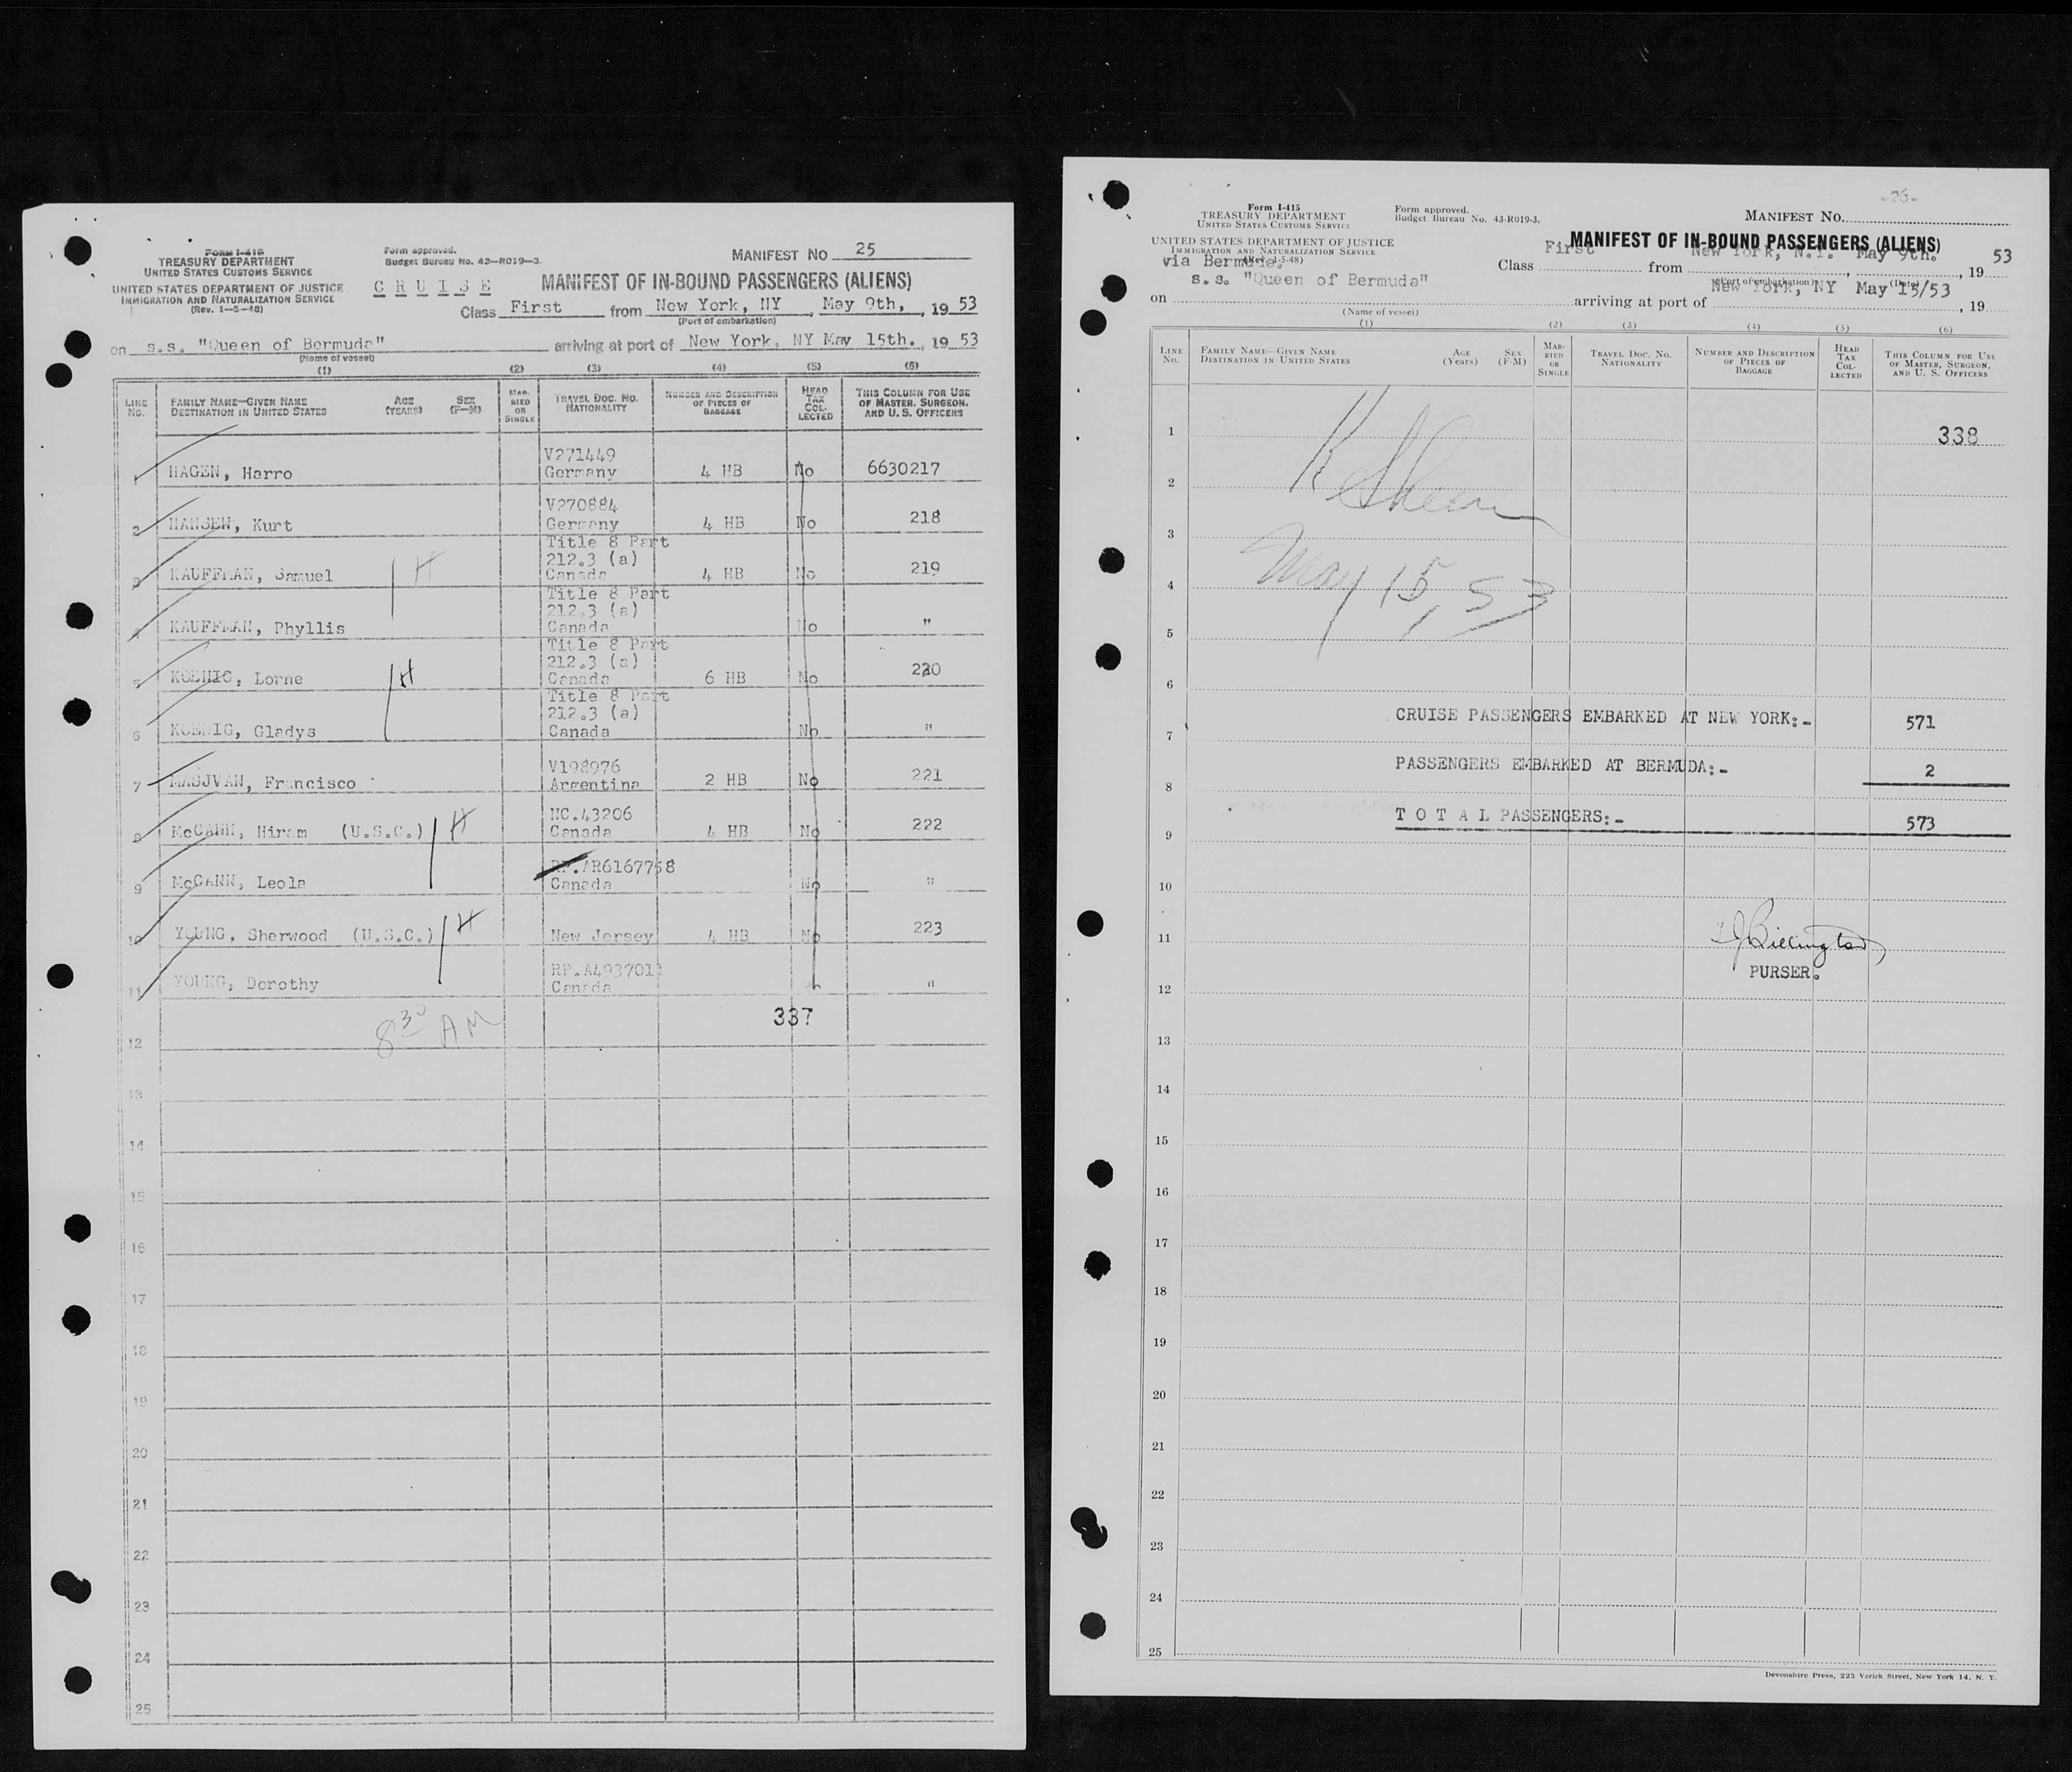 Form I-415
TREASURY DEPARTMENT
UNITED STATES CUSTOMS SERVICE
UNITED STATES DEPARTMENT OF JUSTICE
IMMIGRATION AND NATURALIZATION SERVICE
(Rev. 1—5—48)
Form approved.
Budget Bureau No. 43—R019—3.
MANIFEST NO 25
C R U I S E
MANIFEST OF IN-BOUND PASSENGERS (ALIENS)
Class First from New York, NY, May 9th, , 19 53
(Port of embarkation)
on s.s. "Queen of Bermuda" arriving at port of New York, NY May 15th. , 19 53
(Name of vessel)
(1) (2) (3) (4) (5) (6)
LINE NO. FAMILY NAME—GIVEN NAME DESTINATION IN UNITED STATES AGE (YEARS) SEX (F—M) MARRIED OR SINGLE TRAVEL DOC. NO. NATIONALITY NUMBER AND DESCRIPTION OF PIECES OF BAGGAGE HEAD TAX COLLECTED THIS COLUMN FOR USE OF MASTER, SURGEON, AND U. S. OFFICERS
V271449
1 HAGEN, Harro Germany 4 HB No 6630217
V270884
2 HANSEN, Kurt Germany 4 HB No 218
Title 8 Part
212.3 (a)
3 KAUFFMAN, Samuel H Canada 4 HB No 219
Title 8 Part
212.3 (a)
4 KAUFFMAN, Phyllis Canada No "
Title 8 Part
212.3 (a)
5 KOENIG, Lorne H Canada 6 HB No 220
Title 8 Part
212.3 (a)
6 KOENIG, Gladys Canada No "
V198976
7 MASJVAN, Francisco Argentina 2 HB No 221
NC.43206
8 McCANN, Hiram (U.S.C.) H Canada 4 HB No 222
RP.AR6167758
9 McCANN, Leola Canada No "
10 YOUNG, Sherwood (U.S.C.) H New Jersey 4 HB No 223
RP.A4937011
11 YOUNG, Dorothy Canada "
8 30 AM 337
12
13
14
15
16
17
18
19
20
21
22
23
24
25
-26-
Form I-415
TREASURY DEPARTMENT
UNITED STATES CUSTOMS SERVICE
UNITED STATES DEPARTMENT OF JUSTICE
IMMIGRATION AND NATURALIZATION SERVICE
(Rev. 1-5-48)
Form approved.
Budget Bureau No. 43-R019-3.
MANIFEST NO.
MANIFEST OF IN-BOUND PASSENGERS (ALIENS)
via Bermuda.
Class First from New York, N.Y. May 9th. , 19 53
(Port of embarkation) (Date)
on s.s. "Queen of Bermuda" arriving at port of New York, NY May 15/53 , 19
(Name of vessel)
(1) (2) (3) (4) (5) (6)
LINE NO. FAMILY NAME—GIVEN NAME DESTINATION IN UNITED STATES AGE (Years) SEX (F-M) MARRIED OR SINGLE TRAVEL DOC. NO. NATIONALITY NUMBER AND DESCRIPTION OF PIECES OF BAGGAGE HEAD TAX COLLECTED THIS COLUMN FOR USE OF MASTER, SURGEON, AND U. S. OFFICERS
1 338
2
3
4 May 15, 53
5
6
CRUISE PASSENGERS EMBARKED AT NEW YORK:- 571
7
PASSENGERS EMBARKED AT BERMUDA:- 2
8
T O T A L PASSENGERS:- 573
9
10
11 Billington
PURSER.
12
13
14
15
16
17
18
19
20
21
22
23
24
25
Devonshire Press, 225 Varick Street, New York 14, N. Y.